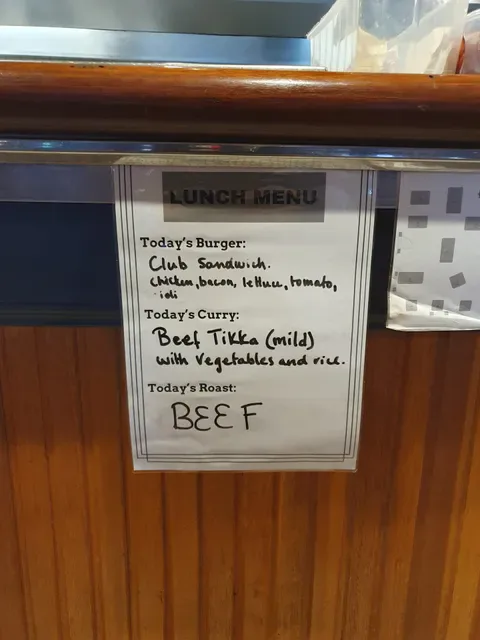 LUNCH MENU
Today's Burger:
Club Sandwich.
Chicken, bacon, lettuce, tomato,
aioli
Today's Curry:
Beef Tikka (mild)
with Vegetables and rice.
Today's Roast:
BEEF